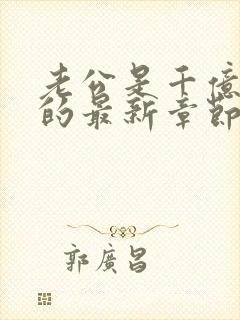 老公是千億
的最新章節
郭廣昌